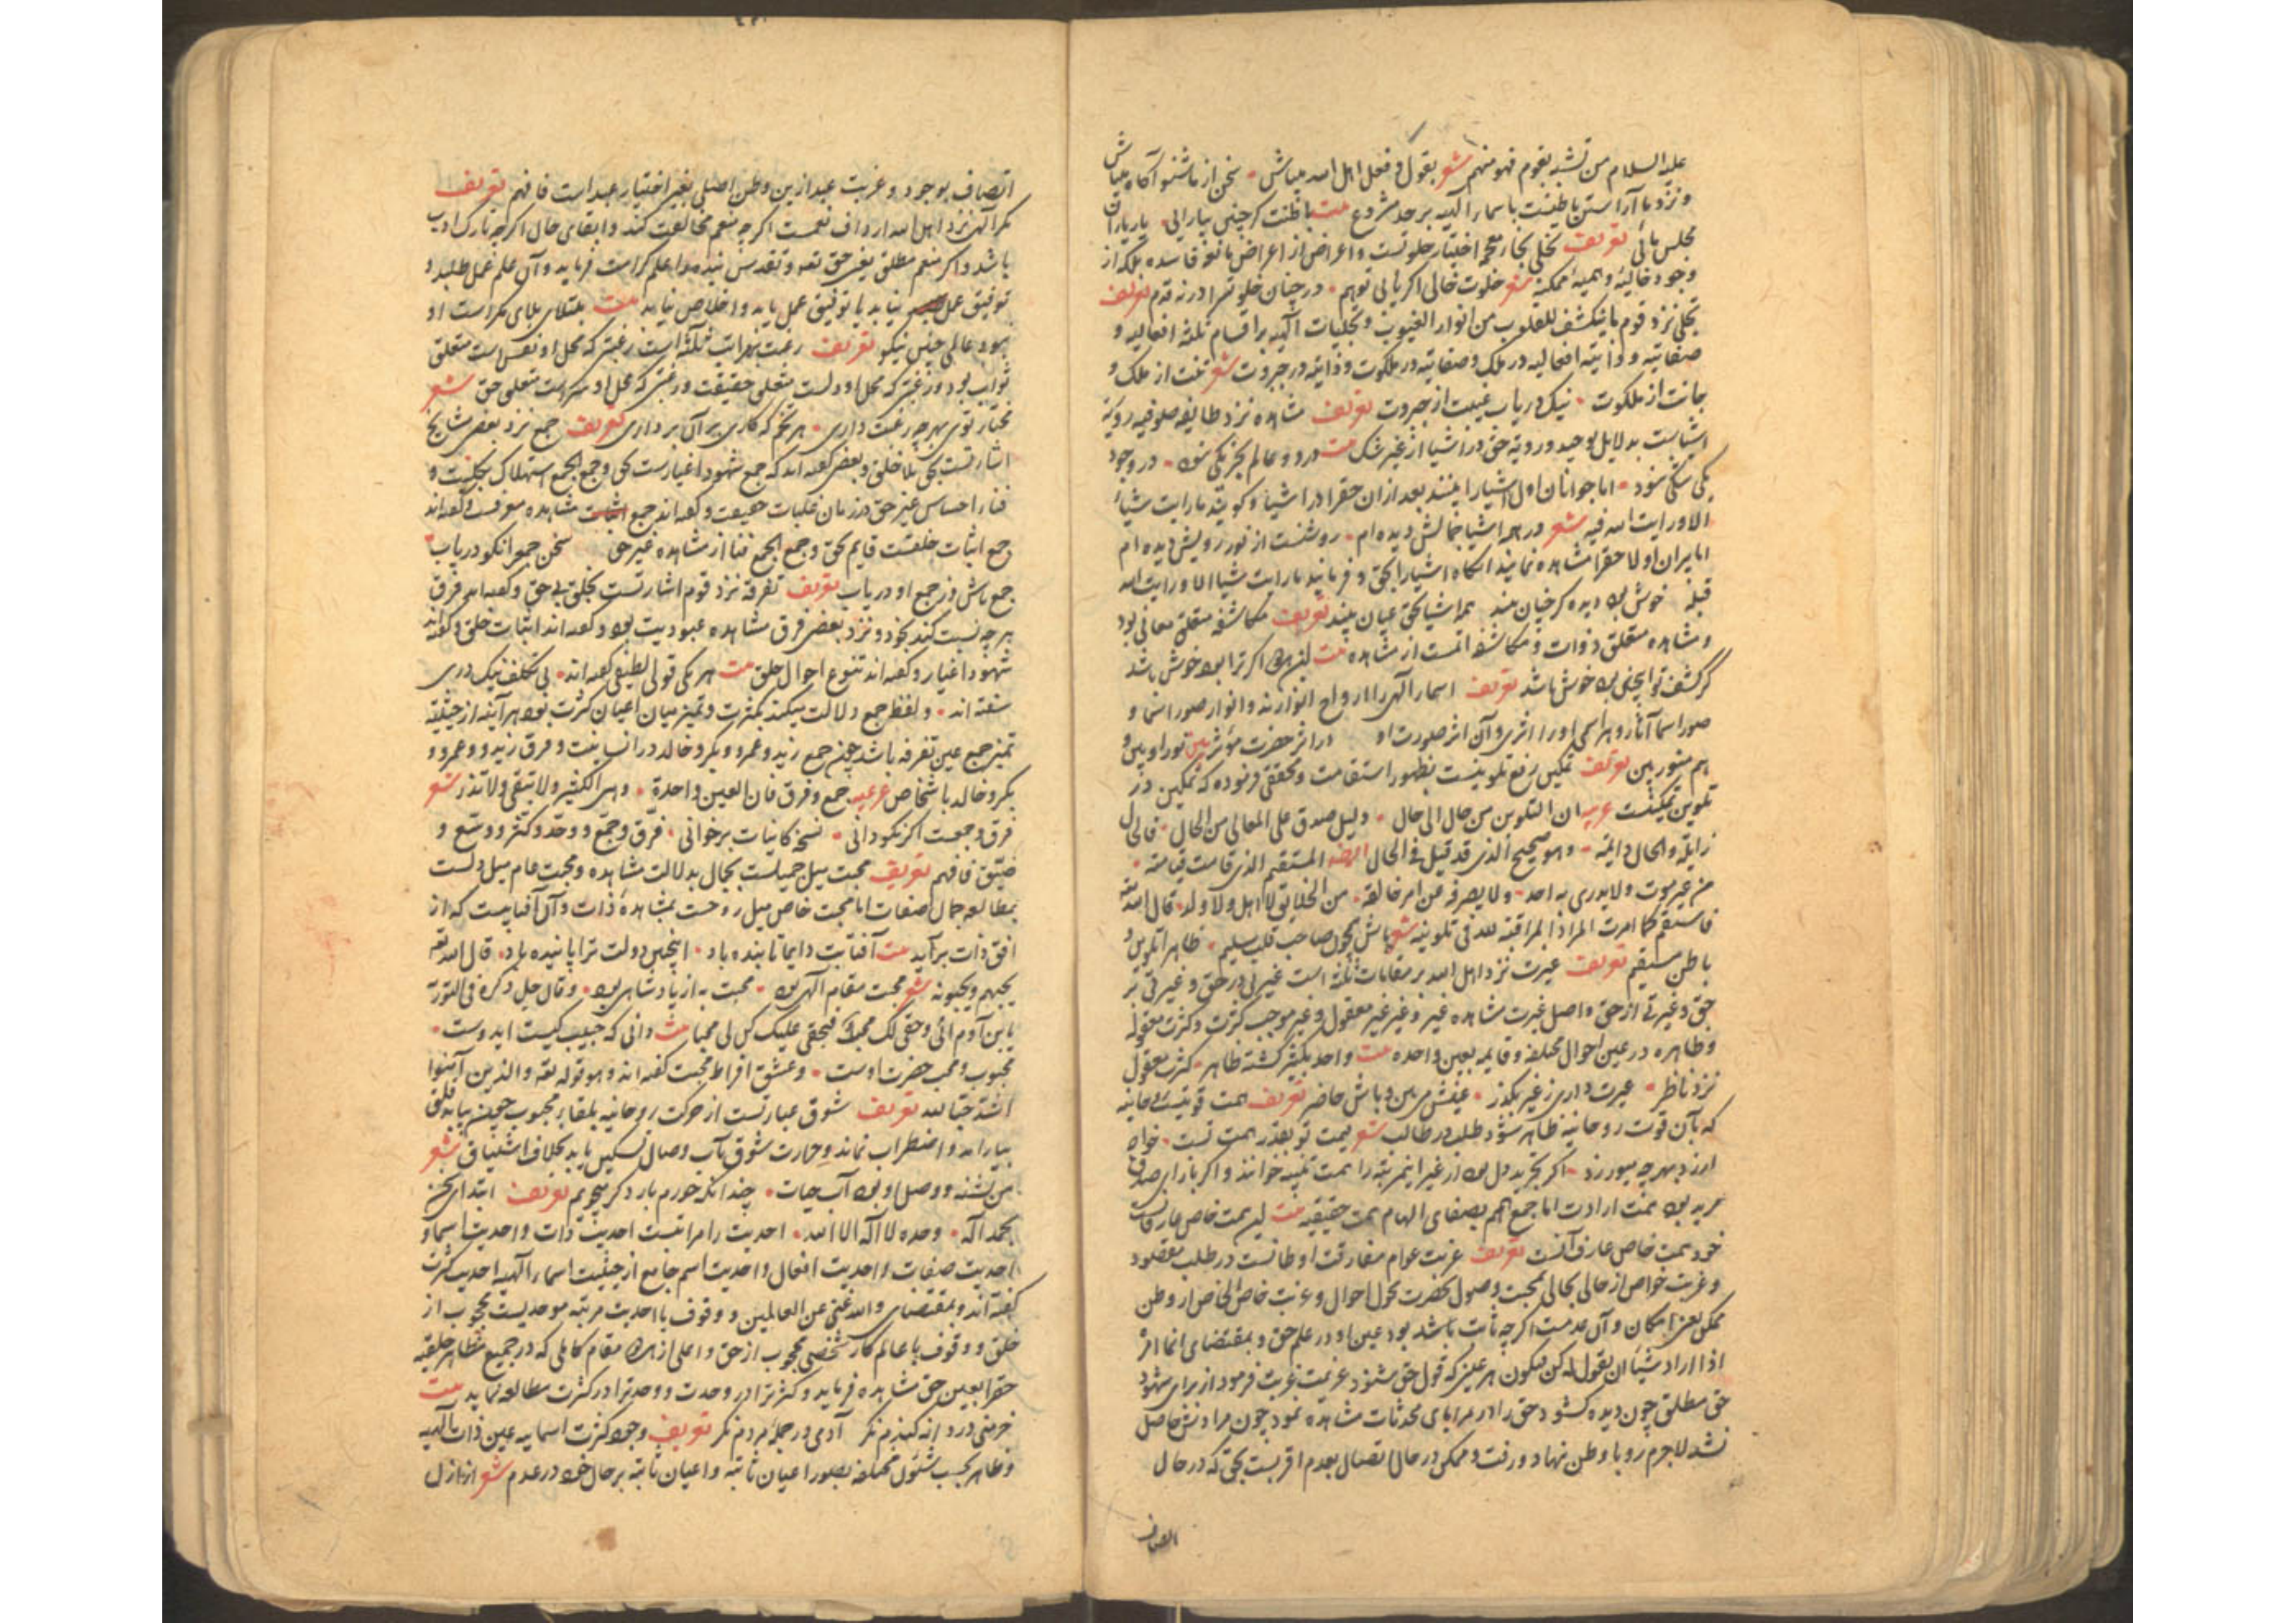 علیه السلام من تشبه بقوم فهو منهم شعر بقول و فعل اهل الله میباش • سخن از ما شنو آگاه میباش
و نزد ما آراستن باطنست باسماء الهیه بر حد مشروع بیت باطنت گر چنین بیارائی • یار یاران
مجلس مائی تعریف تخلی بخاء معجمه اختیار خلوتست و اعراض از اعراض مانعه فاسده بلکه از
وجود خالیه و همیه ممکنه شعر خلوت خالی اگر یابی توهم • در چنان خلوتسرا در نه قدم تعریف
تجلی نزد قوم ما ینکشف للقلوب من انوار الغیوب و تجلیات الهیه بر اقسام ثلثه افعالیه و
صفاتیه و ذاتیه افعالیه در ملک و صفاتیه در ملکوت و ذاتیه در جبروت شعر تنت از ملک و
جانت از ملکوت • نیک دریاب عینت از جبروت تعریف مشاهده نزد طایفه صوفیه رویة
اشیاست بدلایل توحید و رویة حق در اشیا از غیر شک بیت در دو عالم بجز یکی نبود • در وجود
یکی شکی نبود • اما جوانان اول اشیا را بینند بعد ازان حق را در اشیا و گویند ما رایت شیئا
الا و رایت الله فیه شعر در همه اشیا جمالش دیده‌ام • روشنست از نور رویش دیده‌ام
اما پیران اولا حق را مشاهده نمایند آنگاه اشیا را بحق و فرمایند ما رایت شیئا الا و رایت الله
قبله خوش بود دیده که چنان بیند همه اشیا بحق عیان بیند تعریف مکاشفه متعلق معانی بود
و مشاهده متعلق ذوات و مکاشفه اتمست از مشاهده بیت این هر دو اگر ترا بود خوش باشد
گر کشف تو اینچنین بود خوش باشد تعریف اسماء الهی را ارواح انوارند و انوار صور اسما و
صور اسما آثار و هر اسمی او را اثری و آن اثر صورت او در اثر حضرت مؤثر بین نور او بین و
هم منور بین تعریف تمکین رفع تلوینست بظهور استقامت و محققی فرموده که تمکین در
تلوین تمکینست عربیه ان التلوین من حال الی حال • دلیل صدق علی المعالی من الحال • فالحال
زایلة و الحال دایمة • و هو صحیح الذی قد قیل فی الحال ایضا المستقیم الذی قامت قیامته •
من غیر موت و لا یدری به احد • و لا یصرفه عن امر خالقه • من الخلایق لا اهل و لا ولد • قال الله تعه
فاستقم کما امرت المراد المراقبة لله فی تلوینه شعر باش همچون صاحب قلب سلیم • ظاهرا تلوین و
باطن مستقیم تعریف غیرت نزد اهل الله بر مقامات ثلثه است غیرتی در حق و غیرتی بر
حق و غیرتی از حق و اصل غیرت مشاهده غیر و غیر غیر معقول و غیر موجب کثرت و کثرت معقوله
و ظاهره در عین احوال مختلفه و قایمه بعین واحده بیت واحد بکثیر گشته ظاهر • کثرت معقول
نزد ناظر • غیرت داری ز غیر بگذر • عینش می بین و باش حاضر تعریف همت قوتیست روحانیه
که بآن قوت روحانیه ظاهر شود طلب در طالب شعر قیمت تو بقدر همت تست • خواه
ارزد بهر چه میورزد • اگر تجرید دل بود از غیر این مرتبه را همت تنبیه خوانند و اگر باراده صدق
مرید بود همت ارادت اما جمع همم بصفای الهام همت حقیقیه بیت این همت خاص عارفانست
خود همت خاص عارف آنست تعریف غربت عوام مفارقت اوطانست در طلب مقصود
و غربت خواص از حالی بحالی بمحبت وصول بحضرت محول احوال و غربت خاص الخاص از وطن
ممکن یعنی امکان و آن عدمست اگر چه ثابت باشد بود عین او در علم حق و بمقتضای انما امره
اذا اراد شیئا ان یقول له کن فیکون هر عینی که قول حق شنود عزیمت غربت فرمود از برای شهود
حق مطلق چون دیده گشود حق را در مرایای محدثات مشاهده نمود چون مرادش حاصل
نشد لاجرم رو باوطن نهاد و رفت و ممکن در حال اتصال بعدم اقربست بحق که در حال
اتصاف
اتصاف بوجود و غربت عبد ازین وطن اصلی بغیر اختیار عبد است فافهم تعریف
مکر الهی نزد اهل الله ارداف نعمست اگر چه منعم مخالفت کند و ابقای حال اگر چه تارک ادب
باشد و اگر منعم مطلق یعنی حق تعه و تقدس بنده را علم کرامت فرماید و آن علم عمل طلبد و
توفیق عمل نیابد یا توفیق عمل یابد و اخلاص نیابد بیت مبتلای بلای مکر است او
نبود عالمی چنین نیکو تعریف رغبت بمراتب ثلثه است رغبتی که محل او نفس است متعلق
ثواب بود و رغبتی که محل او دلست متعلق حقیقت و رغبتی که محل او سر است متعلق حق شعر
مختار توی بهر چه رغبت داری • هر تخم که کاری بر آن برداری تعریف جمع نزد بعضی مشایخ
اشارتست بحق بلا خلق و بعضی گفته‌اند که جمع شهود اغیارست بحق و جمع الجمع استهلاک بکلیت و
فناء احساس غیر حق در زمان غلبات حقیقت و گفته‌اند جمع مشاهده معرفت و گفته‌اند
جمع اثبات خلقست قایم بحق و جمع الجمع فنا از مشاهده غیر حق سخن جمع را نکو دریاب
جمع باش و ز جمع او دریاب تعریف تفرقه نزد قوم اشارتست بخلق بی حق و گفته‌اند فرق
هر چه نسبت کند بخود و نزد بعضی فرق مشاهده عبودیت بود و گفته‌اند اثبات خلق و گفته‌اند
شهود اغیار و گفته‌اند تنوع احوال خلق بیت هر یکی قولی لطیفی گفته‌اند • بی تکلف نیک دری
سفته‌اند • و لفظ جمع دلالت میکند بکثرت و تمیز میان اعیان کثرت بود هر آینه از حیثیت
تمیز جمع عین تفرقه باشد چون جمع زید و عمرو و بکر و خالد در انسانیت و فرق زید و عمرو و
بکر و خالد باشخاص عربیه جمع و فرق فان العین واحدة • و هی الکثیر و لا تبقی و لا تذر شعر
فرق و جمعت اگر نکو دانی • نسخه کاینات برخوانی • فرق و جمع و وحد و کثر و وسع و
ضیق فافهم تعریف محبت میل جمیلست بجمال بدلالت مشاهده و محبت عام میل دلست
بمطالعه جمال صفات اما محبت خاص میل روحست بمشاهده ذات و آن آفتابیست که از
افق ذات برآید بیت آفتابت دایما تابنده باد • اینچنین دولت ترا پاینده باد • قال الله تعه
یحبهم و یحبونه شعر محبت مقام الهی بود • محبت به از پادشاهی بود • و قال جل ذکره فی التورة
یا بن آدم انی و حقی لک محب فبحقی علیک کن لی محبا بیت دانی که حبیب کیست ای دوست •
محبوب و محب حضرت اوست • و عشق افراط محبت گفته‌اند و هو قوله تعه و الذین آمنوا
اشد حبا لله تعریف شوق عبارتست از حرکت روحانیه بلقاء محبوب چون بیابد قلق
بیارامد و اضطراب نماند و حرارت شوق بآب وصال تسکین یابد بخلاف اشتیاق شعر
من تشنه و وصل او بود آب حیات • چندانکه خورم بار دگر میجویم تعریف ابتدای سخن
بحمد اله • وحده لا اله الا الله • احدیت را مراتبست احدیت ذات و احدیت اسما و
احدیت صفات و احدیت افعال و احدیت اسم جامع از حیثیت اسماء الهیه احدیت کثرت
گفته‌اند و بمقتضای و الله غنی عن العالمین و وقوف با احدیت مرتبه موحدیست محجوب از
خلق و وقوف با عالم کار شخصی محجوب از حق و اعلی از هر دو مقام کاملی که در جمیع مظاهر خلقیه
حق را بعین حق مشاهده فرماید و کثرت را در وحدت و وحدت را در کثرت مطالعه نماید بیت
خرمنی در دانه گندم نگر آدمی در جمله مردم نگر تعریف وجود کثرت اسماییه عین ذات الهیه
و ظاهر بحسب شئون مختلفه بصور اعیان ثابته و اعیان ثابته بر حال خود در عدم شعر از ازل